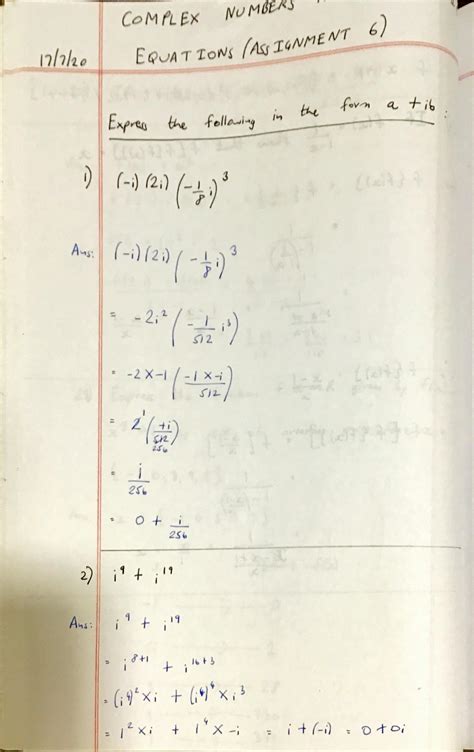 COMPLEX NUMBERS
17/7/20 EQUATIONS (ASSIGNMENT 6)
Express the following in the form a + ib :
1) (-i) (2i) (-1/8 i)³
Ans: (-i) (2i) (-1/8 i)³
= -2i² (-1/512 i³)
= -2 x -1 (-1 x -i / 512)
= 2 (+i / 512) 1 256
= i/256
= 0 + i/256
2) i⁹ + i¹⁹
Ans: i⁹ + i¹⁹
= i⁸⁺¹ + i¹⁶⁺³
= (i⁴)² x i + (i⁴)⁴ x i³
= 1² x i + 1⁴ x -i = i + (-i) = 0 + 0i